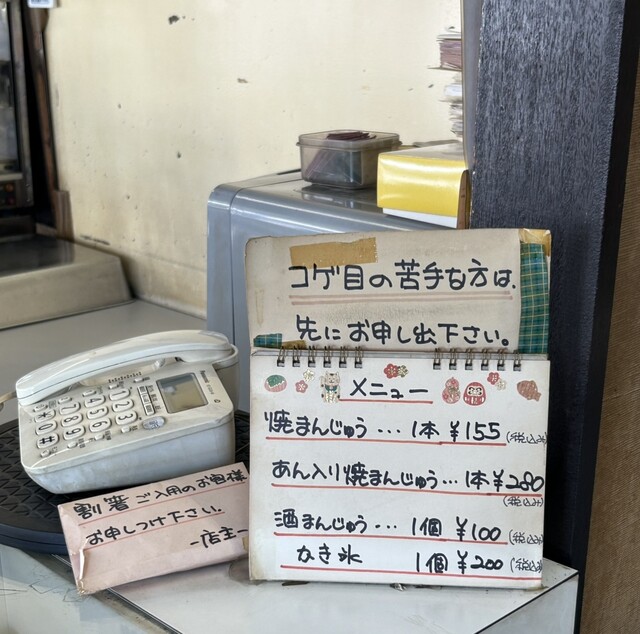 コゲ目の苦手な方は、
先にお申し出下さい。
メニュー
焼まんじゅう… 1本 ¥155(税込み)
あん入り焼まんじゅう… 1本 ¥280
(税込み)
酒まんじゅう… 1個 ¥100(税込み)
なき氷 1個 ¥200(税込み)
割箸ご入用のお客様
お申しつけ下さい。
-店主-